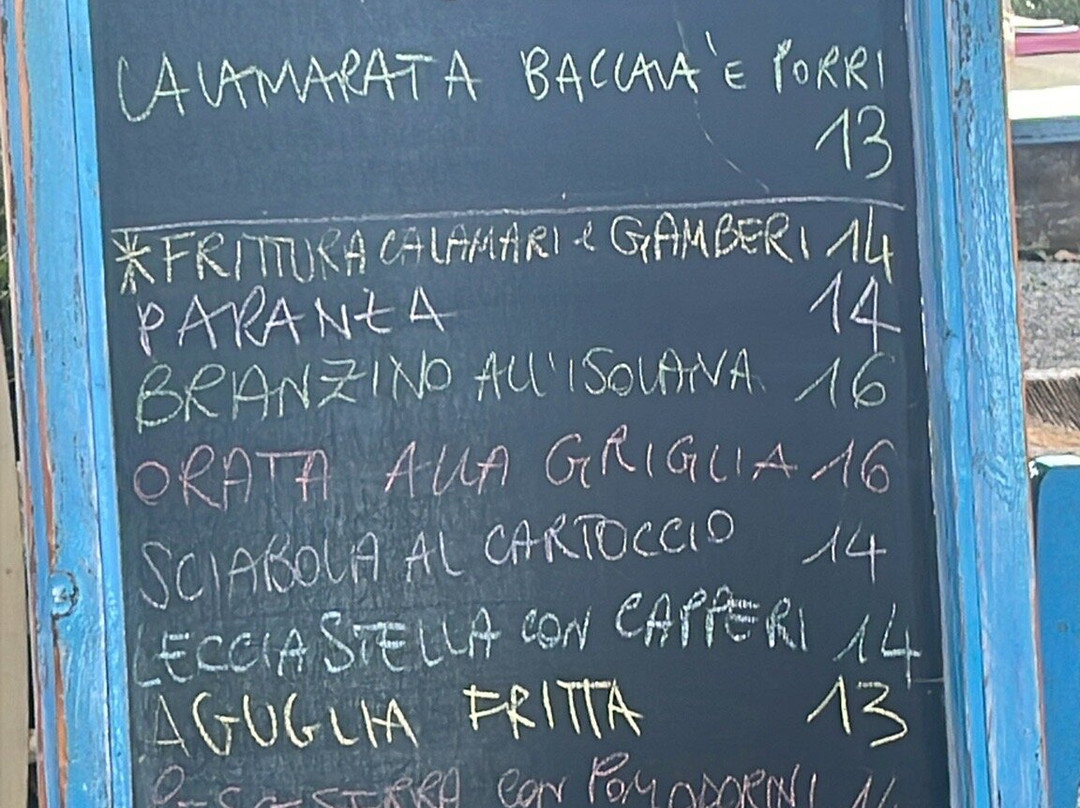 CALAMARATA BACCALA' E PORRI
13
*FRITTURA CALAMARI e GAMBERI 14
PARANZA 14
BRANZINO ALL'ISOLANA 16
ORATA ALLA GRIGLIA 16
SCIABOLA AL CARTOCCIO 14
LECCIA STELLA CON CAPPERI 14
AGUGLIA FRITTA 13
CON POMODORINI